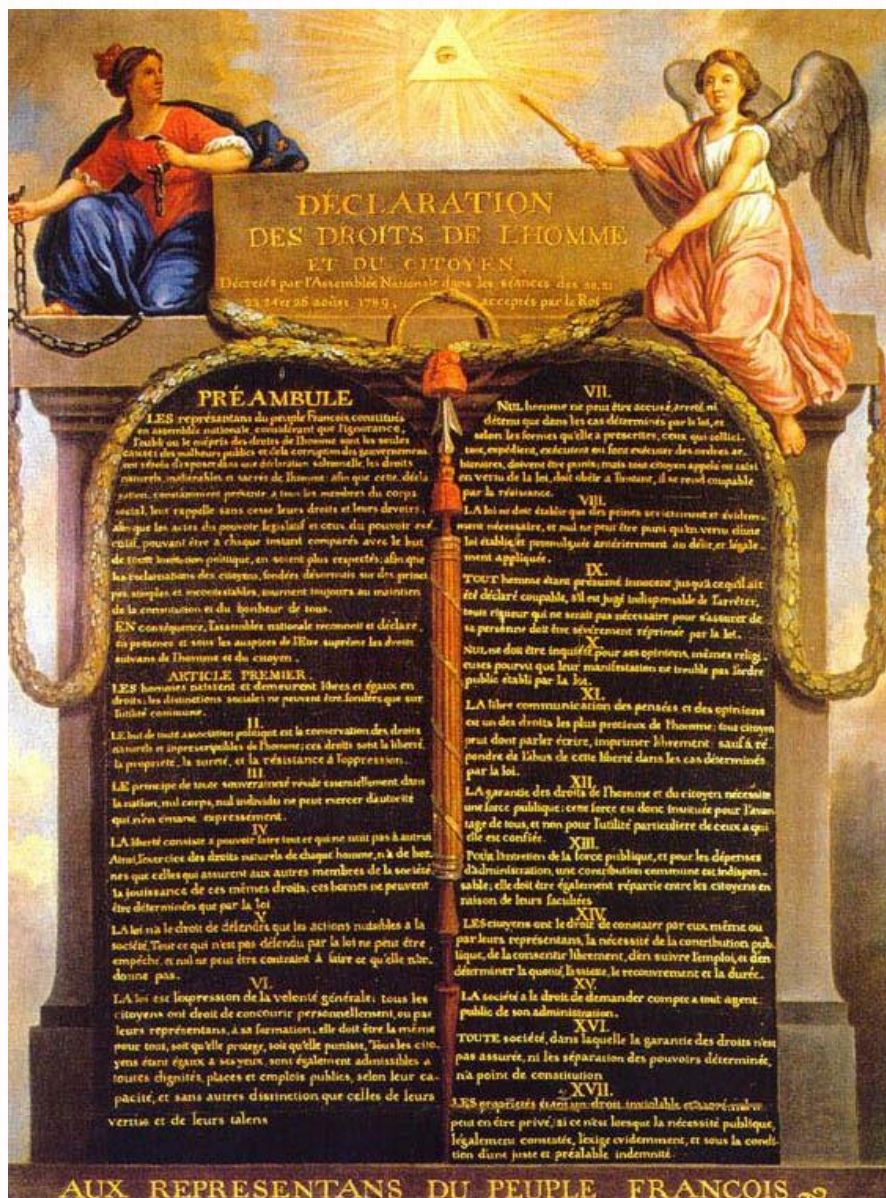 DÉCLARATION
DES DROITS DE L'HOMME
ET DU CITOYEN,
Décretés par l'Assemblée Nationale dans les séances des 20, 21
23, 24 et 26 août 1789, acceptés par le Roi
PRÉAMBULE
LES représentans du peuple François, constitués
en assemblée nationale, considérant que l'ignorance,
l'oubli ou le mépris des droits de l'homme sont les seules
causes des malheurs publics et de la corruption des gouvernemens
ont résolu d'exposer dans une déclaration solemnelle, les droits
naturels, inaliénables et sacrés de l'homme: afin que cette décla
ration, constamment présente a tous les membres du corps
social, leur rappelle sans cesse leurs droits et leurs devoirs;
afin que les actes du pouvoir législatif et ceux du pouvoir exé
cutif, pouvant être à chaque instant comparés avec le but
de toute institution politique, en soient plus respectés; afin que
les réclamations des citoyens, fondées désormais sur des princi
pes simples et incontestables, tournent toujours au maintien
de la constitution et du bonheur de tous.
EN conséquence, l'assemblée nationale reconnoit et déclare,
en presence et sous les auspices de l'Etre suprême les droits
suivans de l'homme et du citoyen.
ARTICLE PREMIER.
LES hommes naissent et demeurent libres et égaux en
droits; les distinctions sociales ne peuvent être fondées que sur
l'utilité commune.
II.
LE but de toute association politique est la conservation des droits
naturels et imprescriptibles de l'homme; ces droits sont la liberté,
la propriété, la sureté, et la résistance à l'oppression.
III.
LE principe de toute souveraineté réside essentiellement dans
la nation, nul corps, nul individu ne peut exercer d'autorité
qui n'en émane expressément.
IV.
LA liberté consiste a pouvoir faire tout ce qui ne nuit pas à autrui
Ainsi, l'exercice des droits naturels de chaque homme, n'a de bor-
nes que celles qui assurent aux autres membres de la société
la jouissance de ces mêmes droits; ces bornes ne peuvent
être déterminées que par la loi
V.
LA loi n'a le droit de défendre que les actions nuisibles à la
société. Tout ce qui n'est pas défendu par la loi ne peut être
empêché, et nul ne peut être contraint à faire ce qu'elle n'or-
donne pas.
VI.
LA loi est l'expression de la volonté générale; tous les
citoyens ont droit de concourir personnellement, ou par
leurs représentans, à sa formation; elle doit être la même
pour tous, soit qu'elle protege, soit qu'elle punisse. Tous les cito-
yens étant égaux à ses yeux, sont également admissibles a
toutes dignités, places et emplois publics, selon leur ca-
pacité, et sans autres distinction que celles de leurs
vertus et de leurs talens
VII.
NUL homme ne peut être accusé, arreté, ni
détenu que dans les cas déterminés par la loi, et
selon les formes qu'elle a prescrites, ceux qui sollici-
tent, expédient, exécutent ou font exécuter des ordres ar-
bitraires, doivent être punis; mais tout citoyen appelé ou saisi
en vertu de la loi, doit obéir a l'instant, il se rend coupable
par la résistance.
VIII.
LA loi ne doit établir que des peines strictement et évidem-
ment nécessaire, et nul ne peut être puni qu'en vertu d'une
loi établie, et promulguée antérierement au délit, et légale-
ment appliquée.
IX.
TOUT homme étant présumé innocent jusqu'à ce qu'il ait
été déclaré coupable, s'il est jugé indispensable de l'arrêter,
toute rigueur qui ne serait pas nécessaire pour s'assurer de
sa personne doit être sévèrement réprimée par la loi.
X.
NUL ne doit être inquiété pour ses opinions, mêmes religi-
euses pourvu que leur manifestation ne trouble pas l'ordre
public établi par la loi.
XI.
LA libre communication des pensées et des opinions
est un des droits les plus precieux de l'homme; tout citoyen
peut donc parler écrire, imprimer librement: sauf à ré-
pondre de l'abus de cette liberté dans les cas déterminés
par la loi.
XII.
LA garantie des droits de l'homme et du citoyen nécessite
une force publique; cette force est donc instituée pour l'avan-
tage de tous, et non pour l'utilité particuliere de ceux a qui
elle est confiée.
XIII.
POUR l'entretien de la force publique, et pour les dépenses
d'administration, une contribution commune est indispen-
sable; elle doit être également répartie entre les citoyens en
raison de leurs facultées
XIV.
LES citoyens ont le droit de constater par eux même ou
par leurs représentans, la nécessité de la contribution pub-
lique, de la consentir librement, d'en suivre l'emploi, et d'en
déterminer la quotité, l'assiette, le recouvrement et la durée.
XV.
LA société a le droit de demander compte a tout agent
public de son administration.
XVI.
TOUTE société, dans laquelle la garantie des droits n'est
pas assurée, ni les séparation des pouvoirs déterminée,
n'a point de constitution
XVII.
LES propriétés étant un droit inviolable et sacré, nul ne
peut en être privé, si ce n'est lorsque la nécessité publique,
légalement constatée, l'exige evidemment, et sous la condi-
tion d'une juste et préalable indemnité.
AUX REPRESENTANS DU PEUPLE FRANCOIS